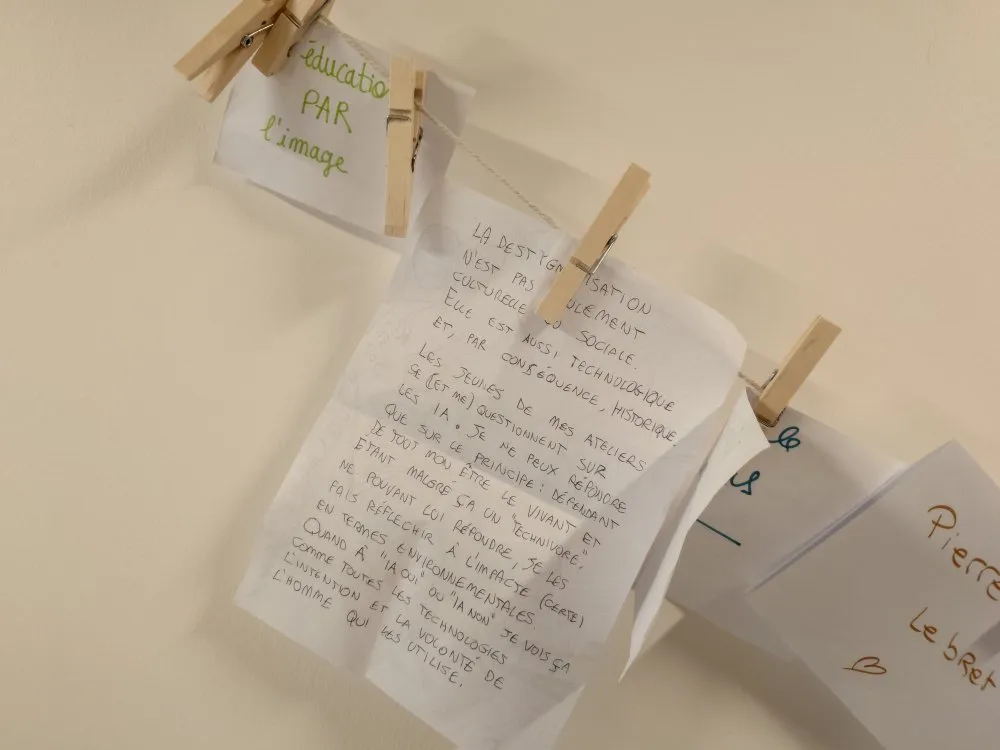 éducatio
PAR
l'image
LA DESTYGM ISATION
N'EST PAS ULEMENT
CULTURELLE SOCIALE.
ELLE EST AUSSI TECHNOLOGIQUE
ET, PAR CONSÉQUENCE, HISTORIQUE.
LES JEUNES DE MES ATELIERS
SE (ET ME) QUESTIONNENT SUR
LES IA. JE NE PEUX RÉPONDRE
QUE SUR LE PRINCIPE : DÉFENDANT
DE TOUT MON ÊTRE LE VIVANT ET
ÉTANT MALGRÉ ÇA UN "TECHNIVORE",
NE POUVANT LUI RÉPONDRE, JE LES
FAIS RÉFLECHIR À L'IMPACTE (CERTE)
EN TERMES ENVIRONNEMENTALES.
QUAND À "IA OUI" OU "IA NON" JE VOIS ÇA
COMME TOUTES LES TECHNOLOGIES
L'INTENTION ET LA VOLONTÉ DE
L'HOMME QUI LES UTILISE.
le
us
Pierre
LebRet